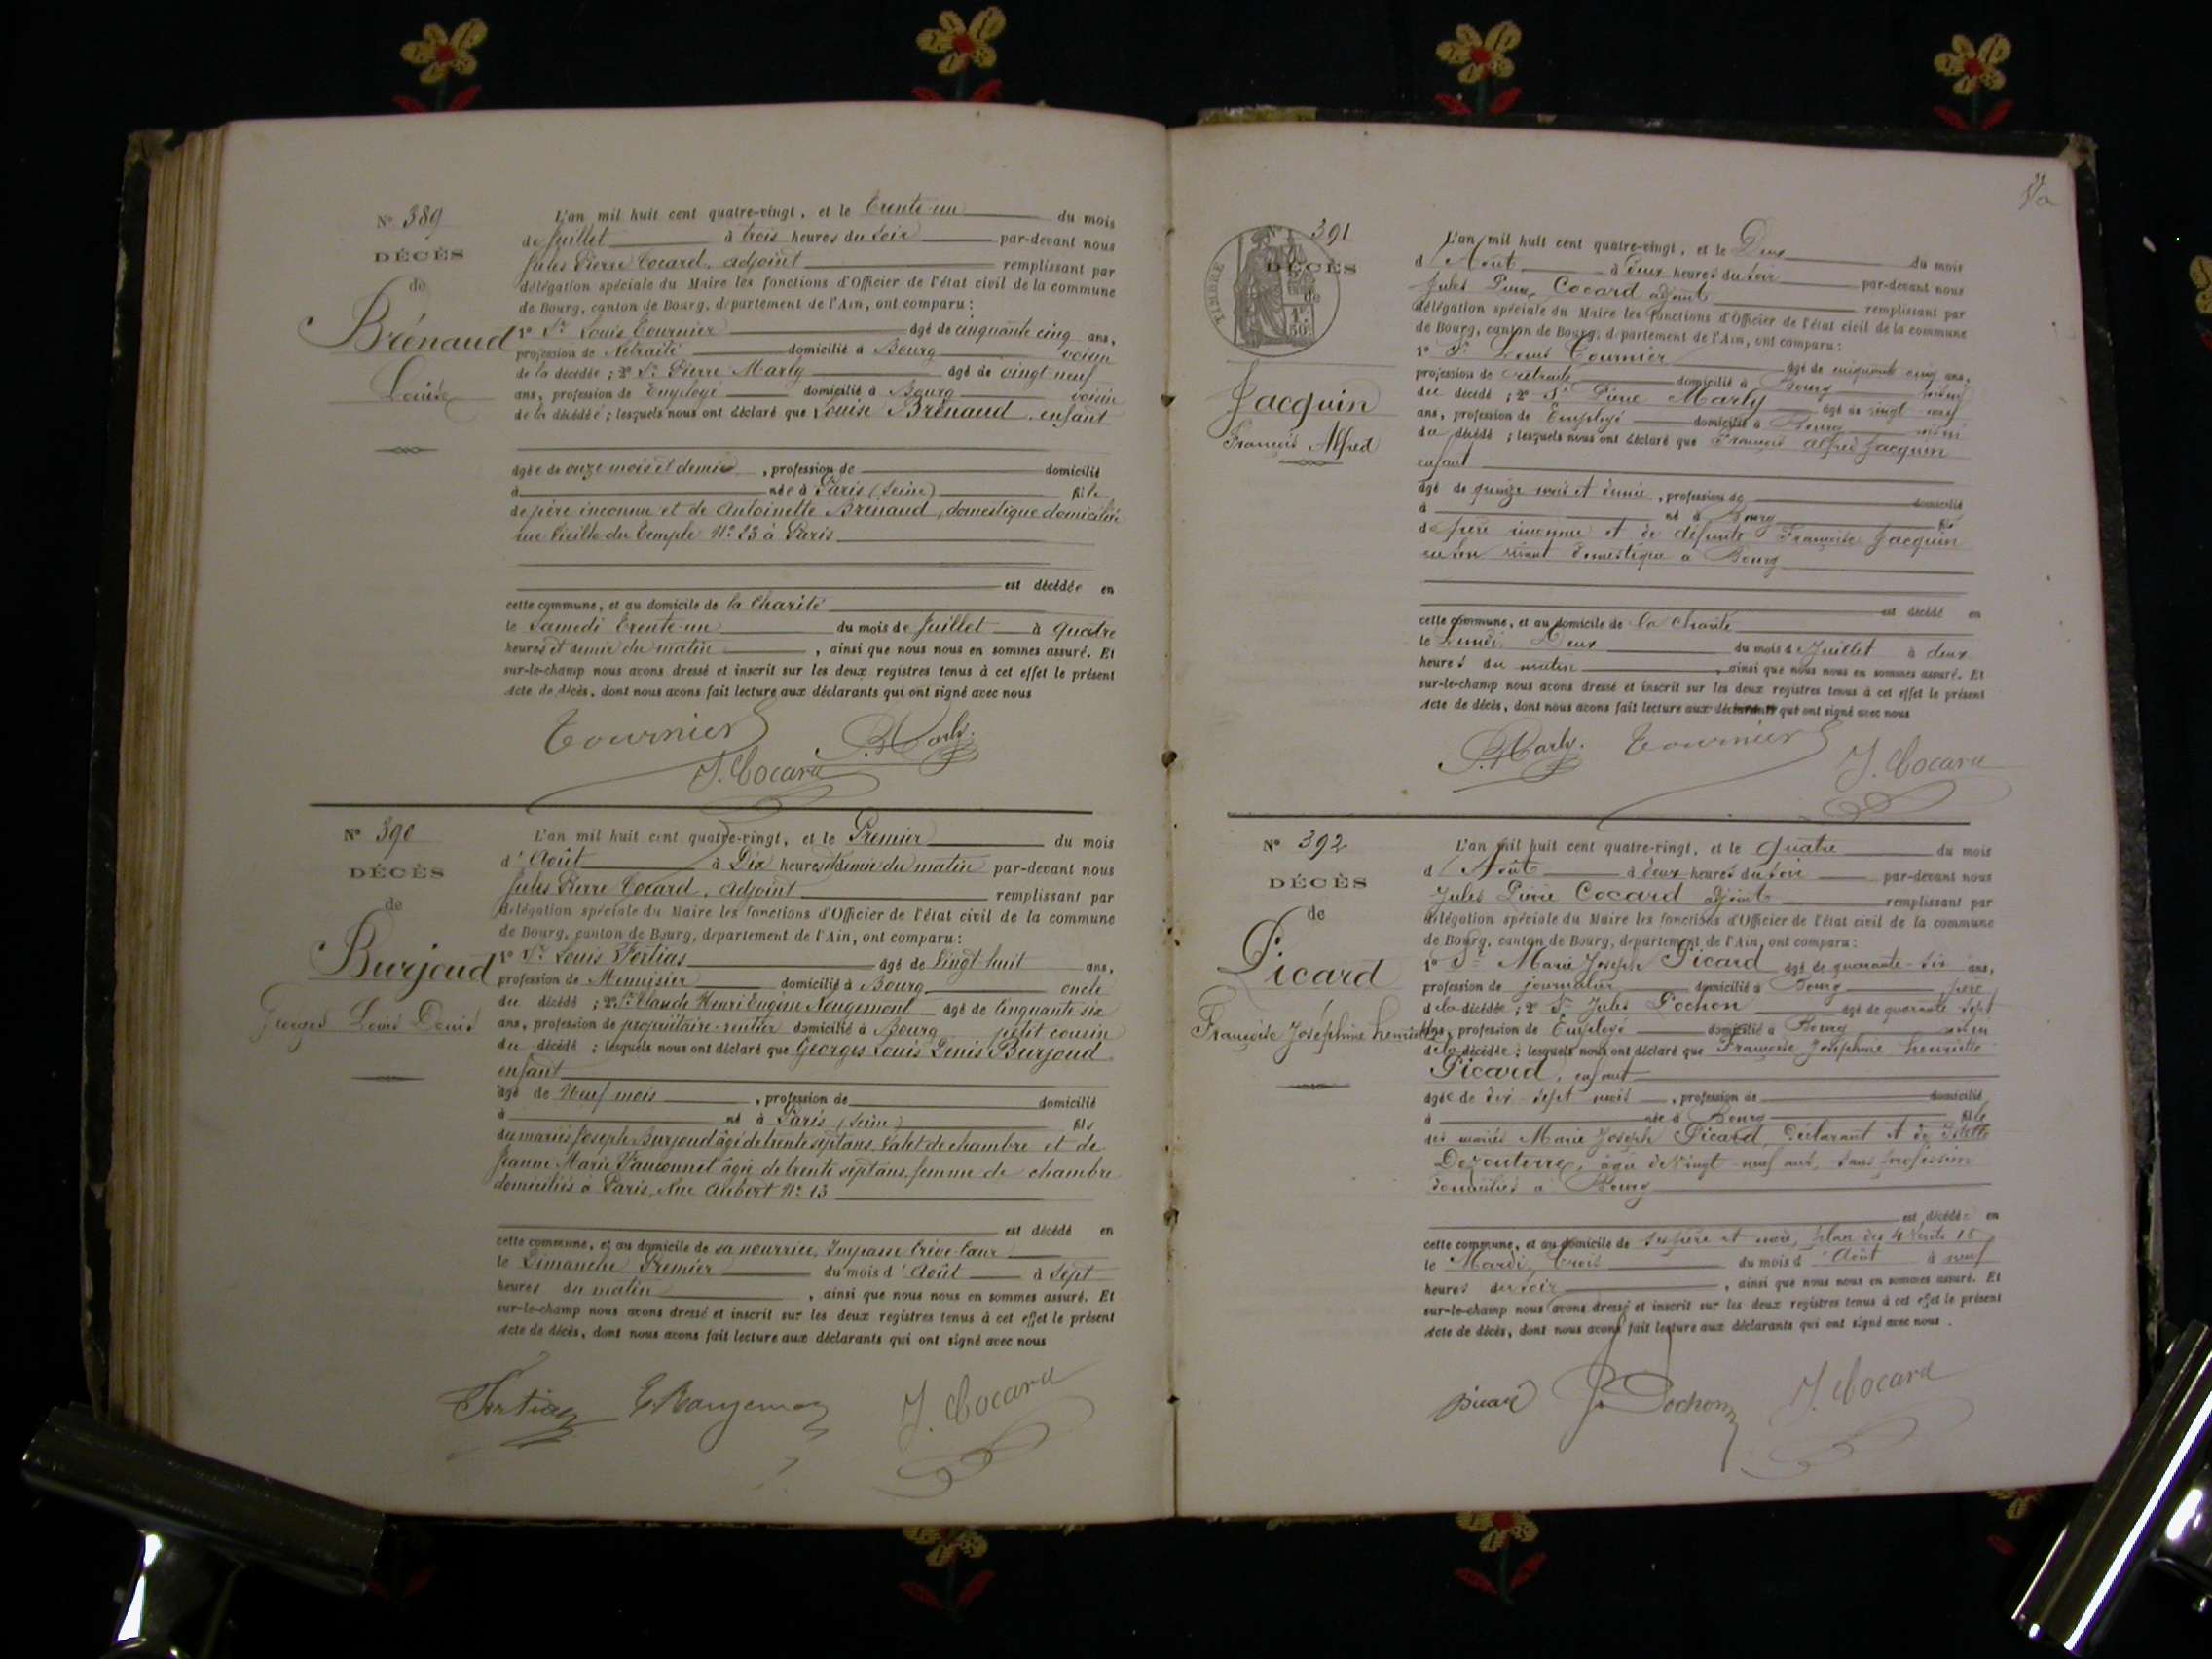 N° 389
DÉCÈS
de
Brénaud
Louise
L'an mil huit cent quatre-vingt, et le trente-un du mois
de Juillet à trois heures du soir par-devant nous
Jules Pierre Cocard, adjoint remplissant par
délégation spéciale du Maire les fonctions d'Officier de l'état civil de la commune
de Bourg, canton de Bourg, département de l'Ain, ont comparu :
1° Sr Louis Tournier âgé de cinquante cinq ans,
profession de Retraité domicilié à Bourg voisin
de la décédée ; 2° Sr Pierre Marly âgé de vingt-neuf
ans, profession de Employé domicilié à Bourg voisin
de la décédée ; lesquels nous ont déclaré que Louise Brénaud, enfant
âgée de onze mois et demie, profession de domicilié
à née à Paris (Seine) fille
de père inconnu et de Antoinette Brénaud, domestique domiciliée
rue Vieille du Temple N° 23 à Paris
est décédée en
cette commune, et au domicile de la Charité
le Samedi trente-un du mois de Juillet à quatre
heures et demie du matin, ainsi que nous nous en sommes assuré. Et
sur-le-champ nous avons dressé et inscrit sur les deux registres tenus à cet effet le présent
Acte de décès, dont nous avons fait lecture aux déclarants qui ont signé avec nous
Tournier P. Marly.
J. Cocard
N° 390
DÉCÈS
de
Burjoud
Georges Louis Denis
L'an mil huit cent quatre-vingt, et le Premier du mois
d'Août à Dix heures et demie du matin par-devant nous
Jules Pierre Cocard, adjoint remplissant par
délégation spéciale du Maire les fonctions d'Officier de l'état civil de la commune
de Bourg, canton de Bourg, département de l'Ain, ont comparu :
1° Sr Louis Fertias âgé de Vingt-huit ans,
profession de Menuisier domicilié à Bourg oncle
du décédé ; 2° Sr Claude Henri Eugène âgé de Cinquante six
ans, profession de propriétaire-rentier domicilié à Bourg petit cousin
du décédé ; lesquels nous ont déclaré que Georges Louis Denis Burjoud
enfant
âgé de Neuf mois, profession de domicilié
à né à Paris (Seine) fils
des mariés Joseph Burjoud âgé de trente sept ans, Valet de chambre et de
Jeanne Marie Vauconnet âgée de trente sept ans, femme de chambre
domiciliés à Paris, Rue Aubert N° 13
est décédé en
cette commune, et au domicile de sa nourrice, Impasse Crève-Cœur
le Dimanche Premier du mois d'Août à Sept
heures du matin, ainsi que nous nous en sommes assuré. Et
sur-le-champ nous avons dressé et inscrit sur les deux registres tenus à cet effet le présent
Acte de décès, dont nous avons fait lecture aux déclarants qui ont signé avec nous
Fertias J. Cocard
N° 391
DÉCÈS
de
TIMBRE
1F
50c
Jacquin
François Alfred
L'an mil huit cent quatre-vingt, et le Deux du mois
d'Août à Deux heures du soir par-devant nous
Jules Pierre Cocard adjoint remplissant par
délégation spéciale du Maire les fonctions d'Officier de l'état civil de la commune
de Bourg, canton de Bourg, département de l'Ain, ont comparu :
1° Sr Louis Tournier âgé de cinquante cinq ans,
profession de retraité domicilié à Bourg voisin
du décédé ; 2° Sr Pierre Marly âgé de vingt neuf
ans, profession de Employé domicilié à Bourg voisin
du décédé ; lesquels nous ont déclaré que François Alfred Jacquin
enfant
âgé de quinze mois et demie, profession de domicilié
à né à Bourg fils
de père inconnu et de défunte Françoise Jacquin
en son vivant domestique à Bourg
est décédé en
cette commune, et au domicile de la Charité
le Lundi Deux du mois de Juillet à deux
heures du matin, ainsi que nous nous en sommes assuré. Et
sur-le-champ nous avons dressé et inscrit sur les deux registres tenus à cet effet le présent
Acte de décès, dont nous avons fait lecture aux déclarants qui ont signé avec nous
P. Marly. Tournier J. Cocard
N° 392
DÉCÈS
de
Picard
Françoise Joséphine henriette
L'an mil huit cent quatre-vingt, et le quatre du mois
d'Août à deux heures du soir par-devant nous
Jules Pierre Cocard adjoint remplissant par
délégation spéciale du Maire les fonctions d'Officier de l'état civil de la commune
de Bourg, canton de Bourg, département de l'Ain, ont comparu :
1° Sr Marie Joseph Picard âgé de quarante-six ans,
profession de journalier domicilié à Bourg père
de la décédée ; 2° Sr Jules Pochon âgé de quarante sept
ans, profession de Employé domicilié à Bourg voisin
de la décédée ; lesquels nous ont déclaré que Françoise Joséphine henriette
Picard, enfant
âgée de dix-sept mois, profession de domicilié
à née à Bourg fille
des mariés Marie Joseph Picard, Déclarant et de
âgée de Vingt-neuf ans, sans profession
domiciliés à Bourg
est décédée en
cette commune, et au domicile de ses père et mère, place des 4 Vents 18
le Mardi, trois du mois d'Août à neuf
heures du soir, ainsi que nous nous en sommes assuré. Et
sur-le-champ nous avons dressé et inscrit sur les deux registres tenus à cet effet le présent
Acte de décès, dont nous avons fait lecture aux déclarants qui ont signé avec nous.
picard J. Pochon J. Cocard